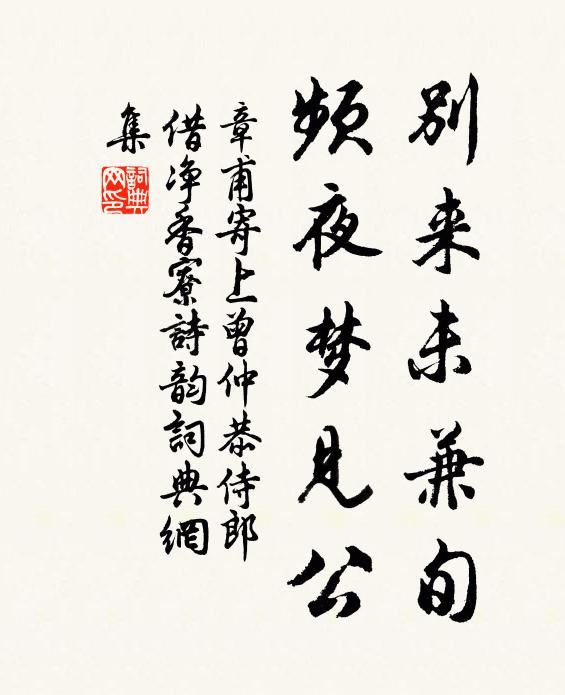 别来未兼旬
频夜梦见公
章甫寄上曾仲恭侍郎
借净香寮詩韵詞典網
集
詞典网印